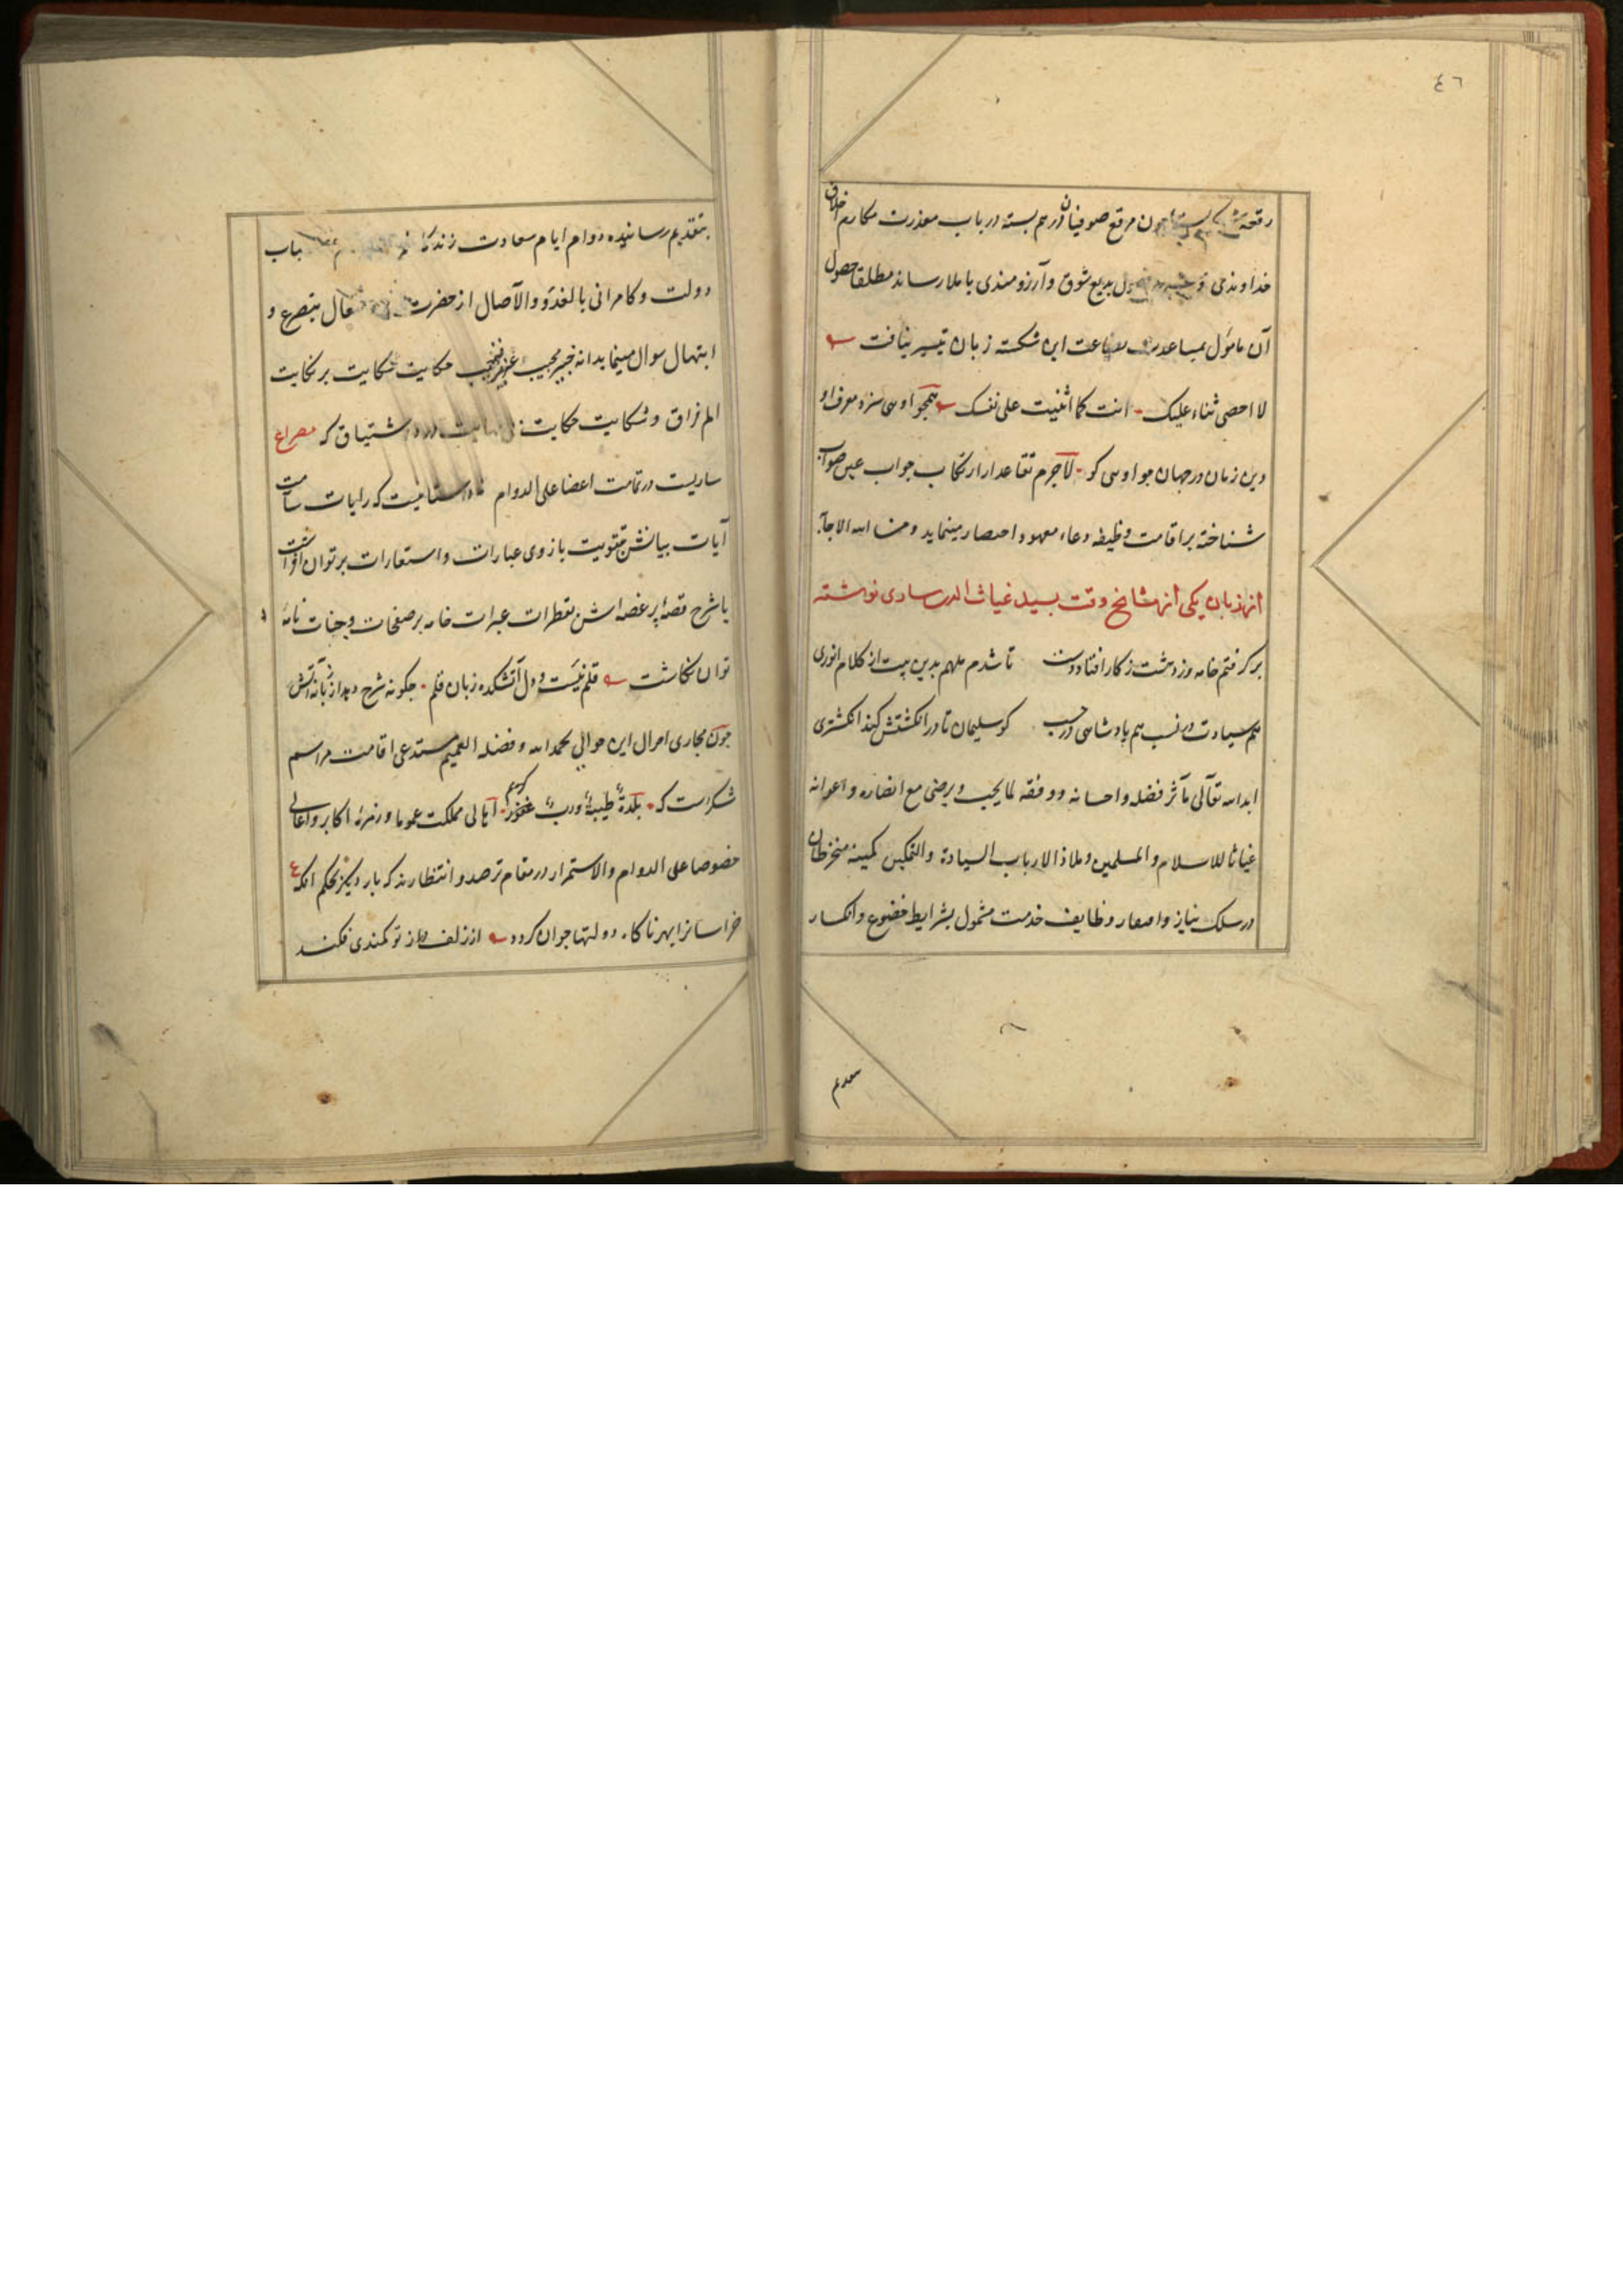 ٤٦
رقعهٔ چون مرقع صوفیان درهم بسته در باب معذرت مکارم اخلاق
خداوندی بدیع شوق و آرزومندی باملا رساند مطلقا حصول
آن مامول بمساعدت بضاعت این شکسته زبان تیسیر نیافت
لا احصی ثناء علیک انت کما اثنیت علی نفسک همچو اویی سزد معرف او
دین زمان در جهان چو اویی کو لاجرم تقاعد از ارتکاب جواب عین صواب
شناخته بر اقامت وظیفه دعاء معهود اختصار مینماید ومن الله الاجابة
از زبان یکی از مشایخ وقت بسید غیاث الدین ساوی نوشته
بر گرفتم خامه وز دهشت ز کار افتاد دست تا شدم ملهم بدین بیت از کلام انوری
هم سیادت در نسب هم پادشاهی در حسب کو سلیمان تا در انگشتش کند انگشتری
ابد الله تعالی مآثر فضله و احسانه و وفقه لما یحب و یرضی مع انصاره و اعوانه
غیاثا للاسلام و المسلمین و ملاذا لارباب السیادة و التمکین کمینه منخرطان
در سلک نیاز و وظایف خدمت مشمول بشرایط خضوع و انکسار
بتقدیم رسانیده دوام ایام سعادت باب
دولت و کامرانی بالغدو والآصال از حضرت بتضرع و
ابتهال سوال مینماید انه خیر مجیب حکایت شکایت بر نکایت
الم فراق و شکایت حکایت اشتیاق که مصراع
ساریست در تمامت اعضا علی الدوام که رایات سآمت
آیات بیانش بتقویت بازوی عبارات و استعارات بر توان افراشت
یا شرح قصهٔ پر غصه اش بقطرات عبرات خامه بر صفحات وجنات نامهٔ
توان نگاشت قلم نیست و دل آتشکده زبان قلم چگونه شرح دهد از زبانهٔ آتش
چون مجاری احوال این حوالی بحمد الله و فضله العمیم مستدعی اقامت مراسم
شکرست که بلدة طیبة ورب غفور اهالی مملکت عموما و زمرهٔ اکابر و اعالی
خصوصا علی الدوام والاستمرار در مقام ترصد و انتظارند که بار دیگر بحکم آنکه ع
خراسانرا دولتها جوان گردد از زلف دراز تو کمندی فکند